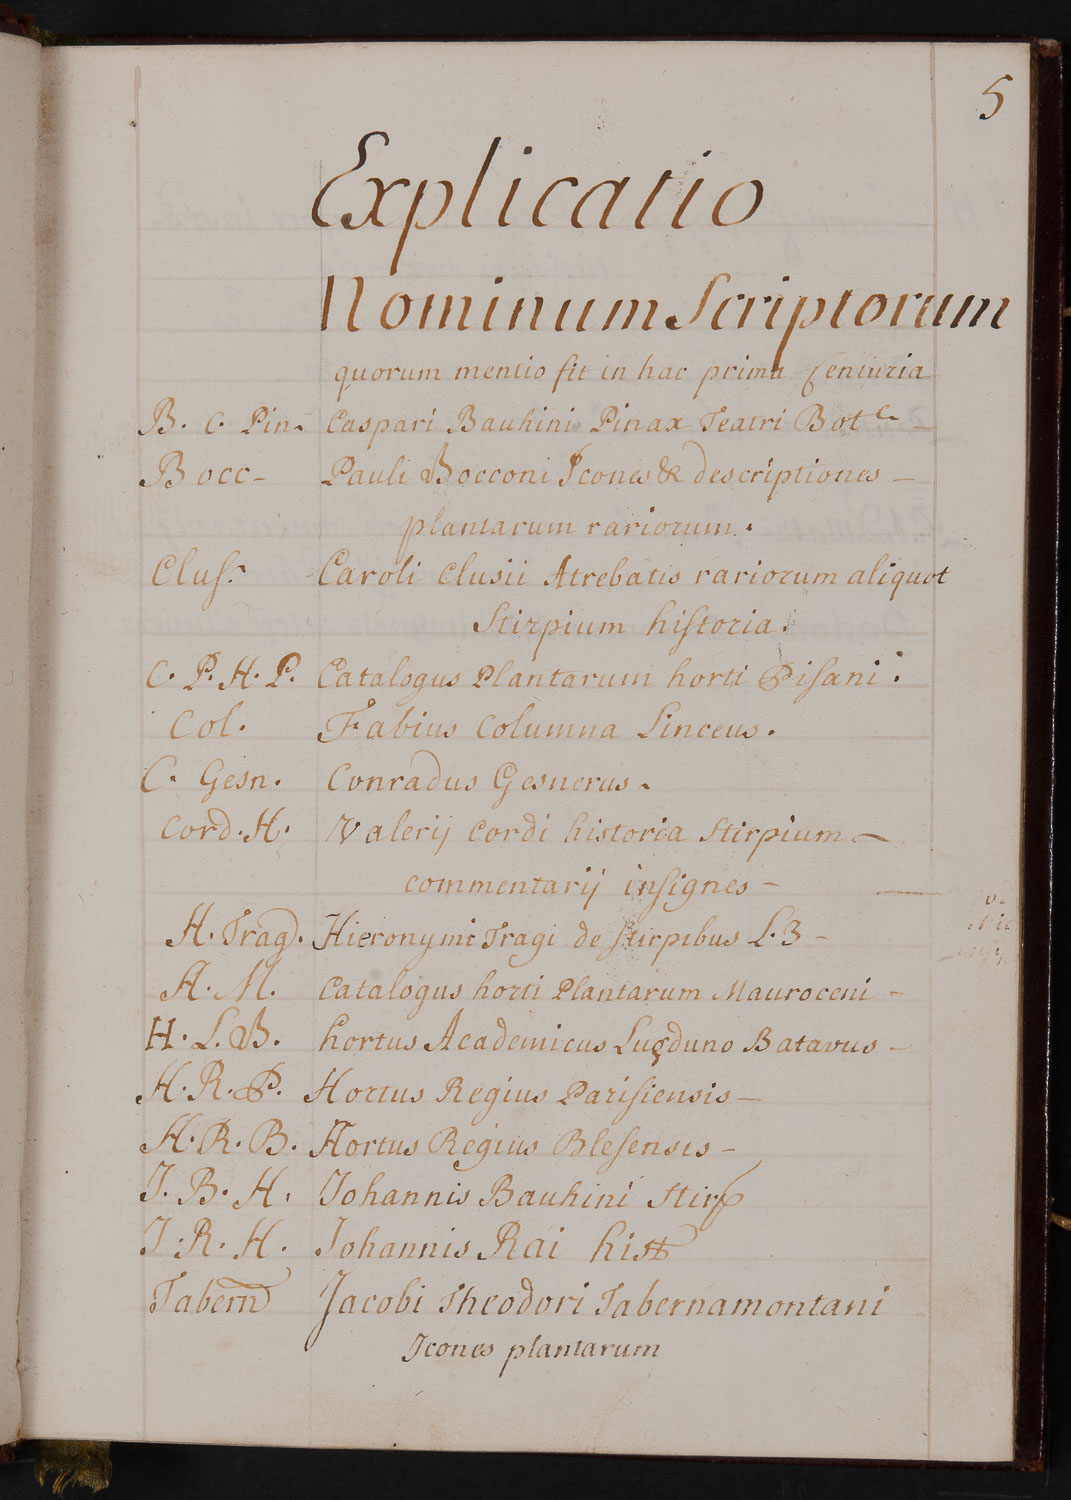 5
Explicatio
Nominum Scriptorum
quorum mentio fit in hac prima Centuria
B. C. Pin. Caspari Bauhini Pinax Teatri Bot.c
Bocc- Pauli Bocconi Icones & descriptiones -
plantarum rariorum.
Clus. Caroli Clusii Atrebatis rariorum aliquot
Stirpium historia.
C. P. H. P. Catalogus Plantarum horti Pisani.
Col. Fabius Columna Linceus.
C. Gesn. Conradus Gesnerus.
Cord. H. Valerij Cordi historia Stirpium -
commentarij insignes -
H. Trag. Hieronymi Tragi de stirpibus L. 3 -
H. M. Catalogus horti Plantarum Mauroceni -
H. L. B. hortus Academicus Lugduno Batavus -
H. R. P. Hortus Regius Parisiensis -
H. R. B. Hortus Regius Blesensis -
J. B. H. Johannis Bauhini Stirp
J. R. H. Johannis Rai hist
Tabern Jacobi Theodori Tabernamontani
Icones plantarum